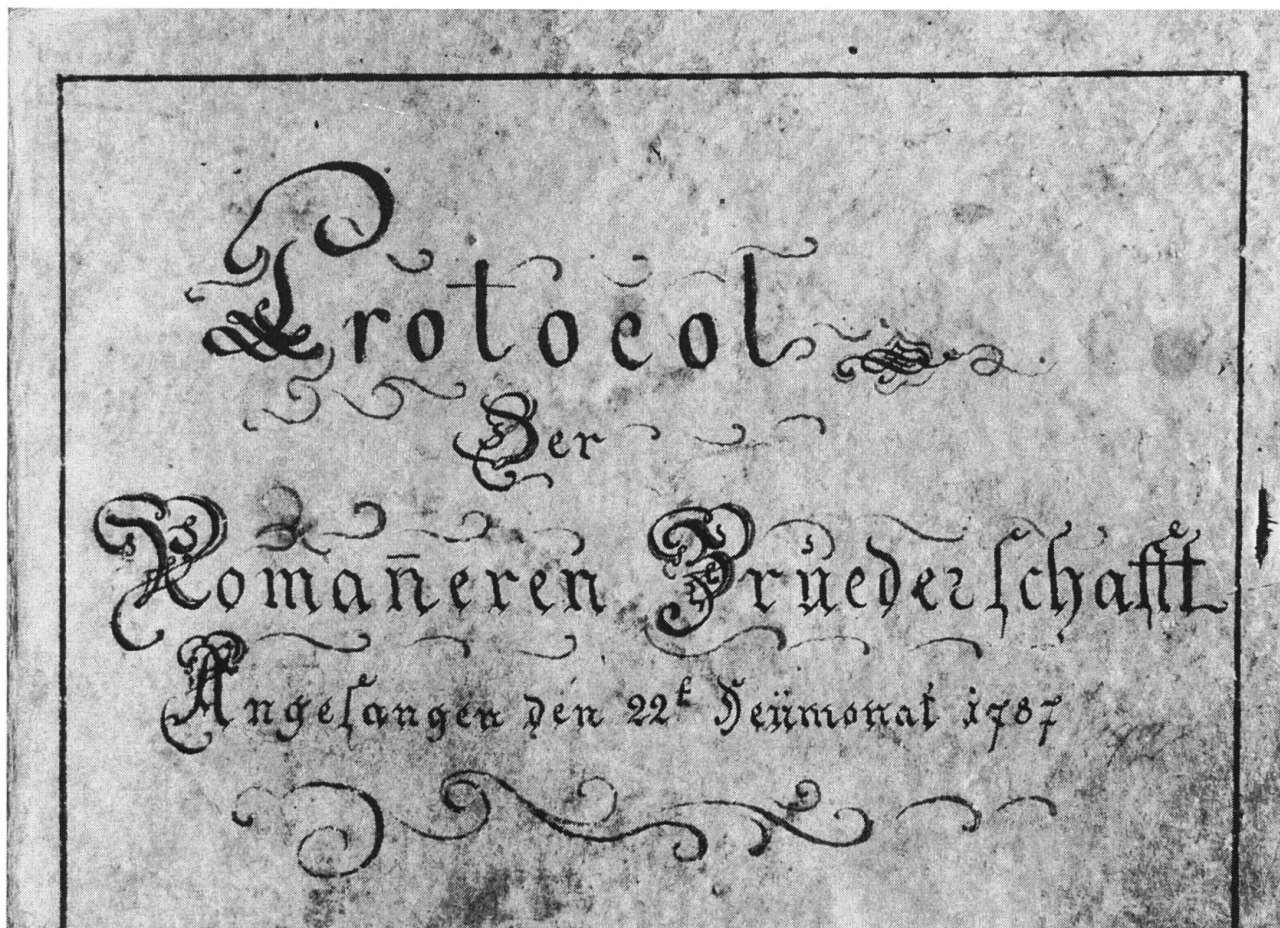 Protocol
Der
Roman̄eren Brüederſchafft
Angefangen den 22t Heümonat 1787